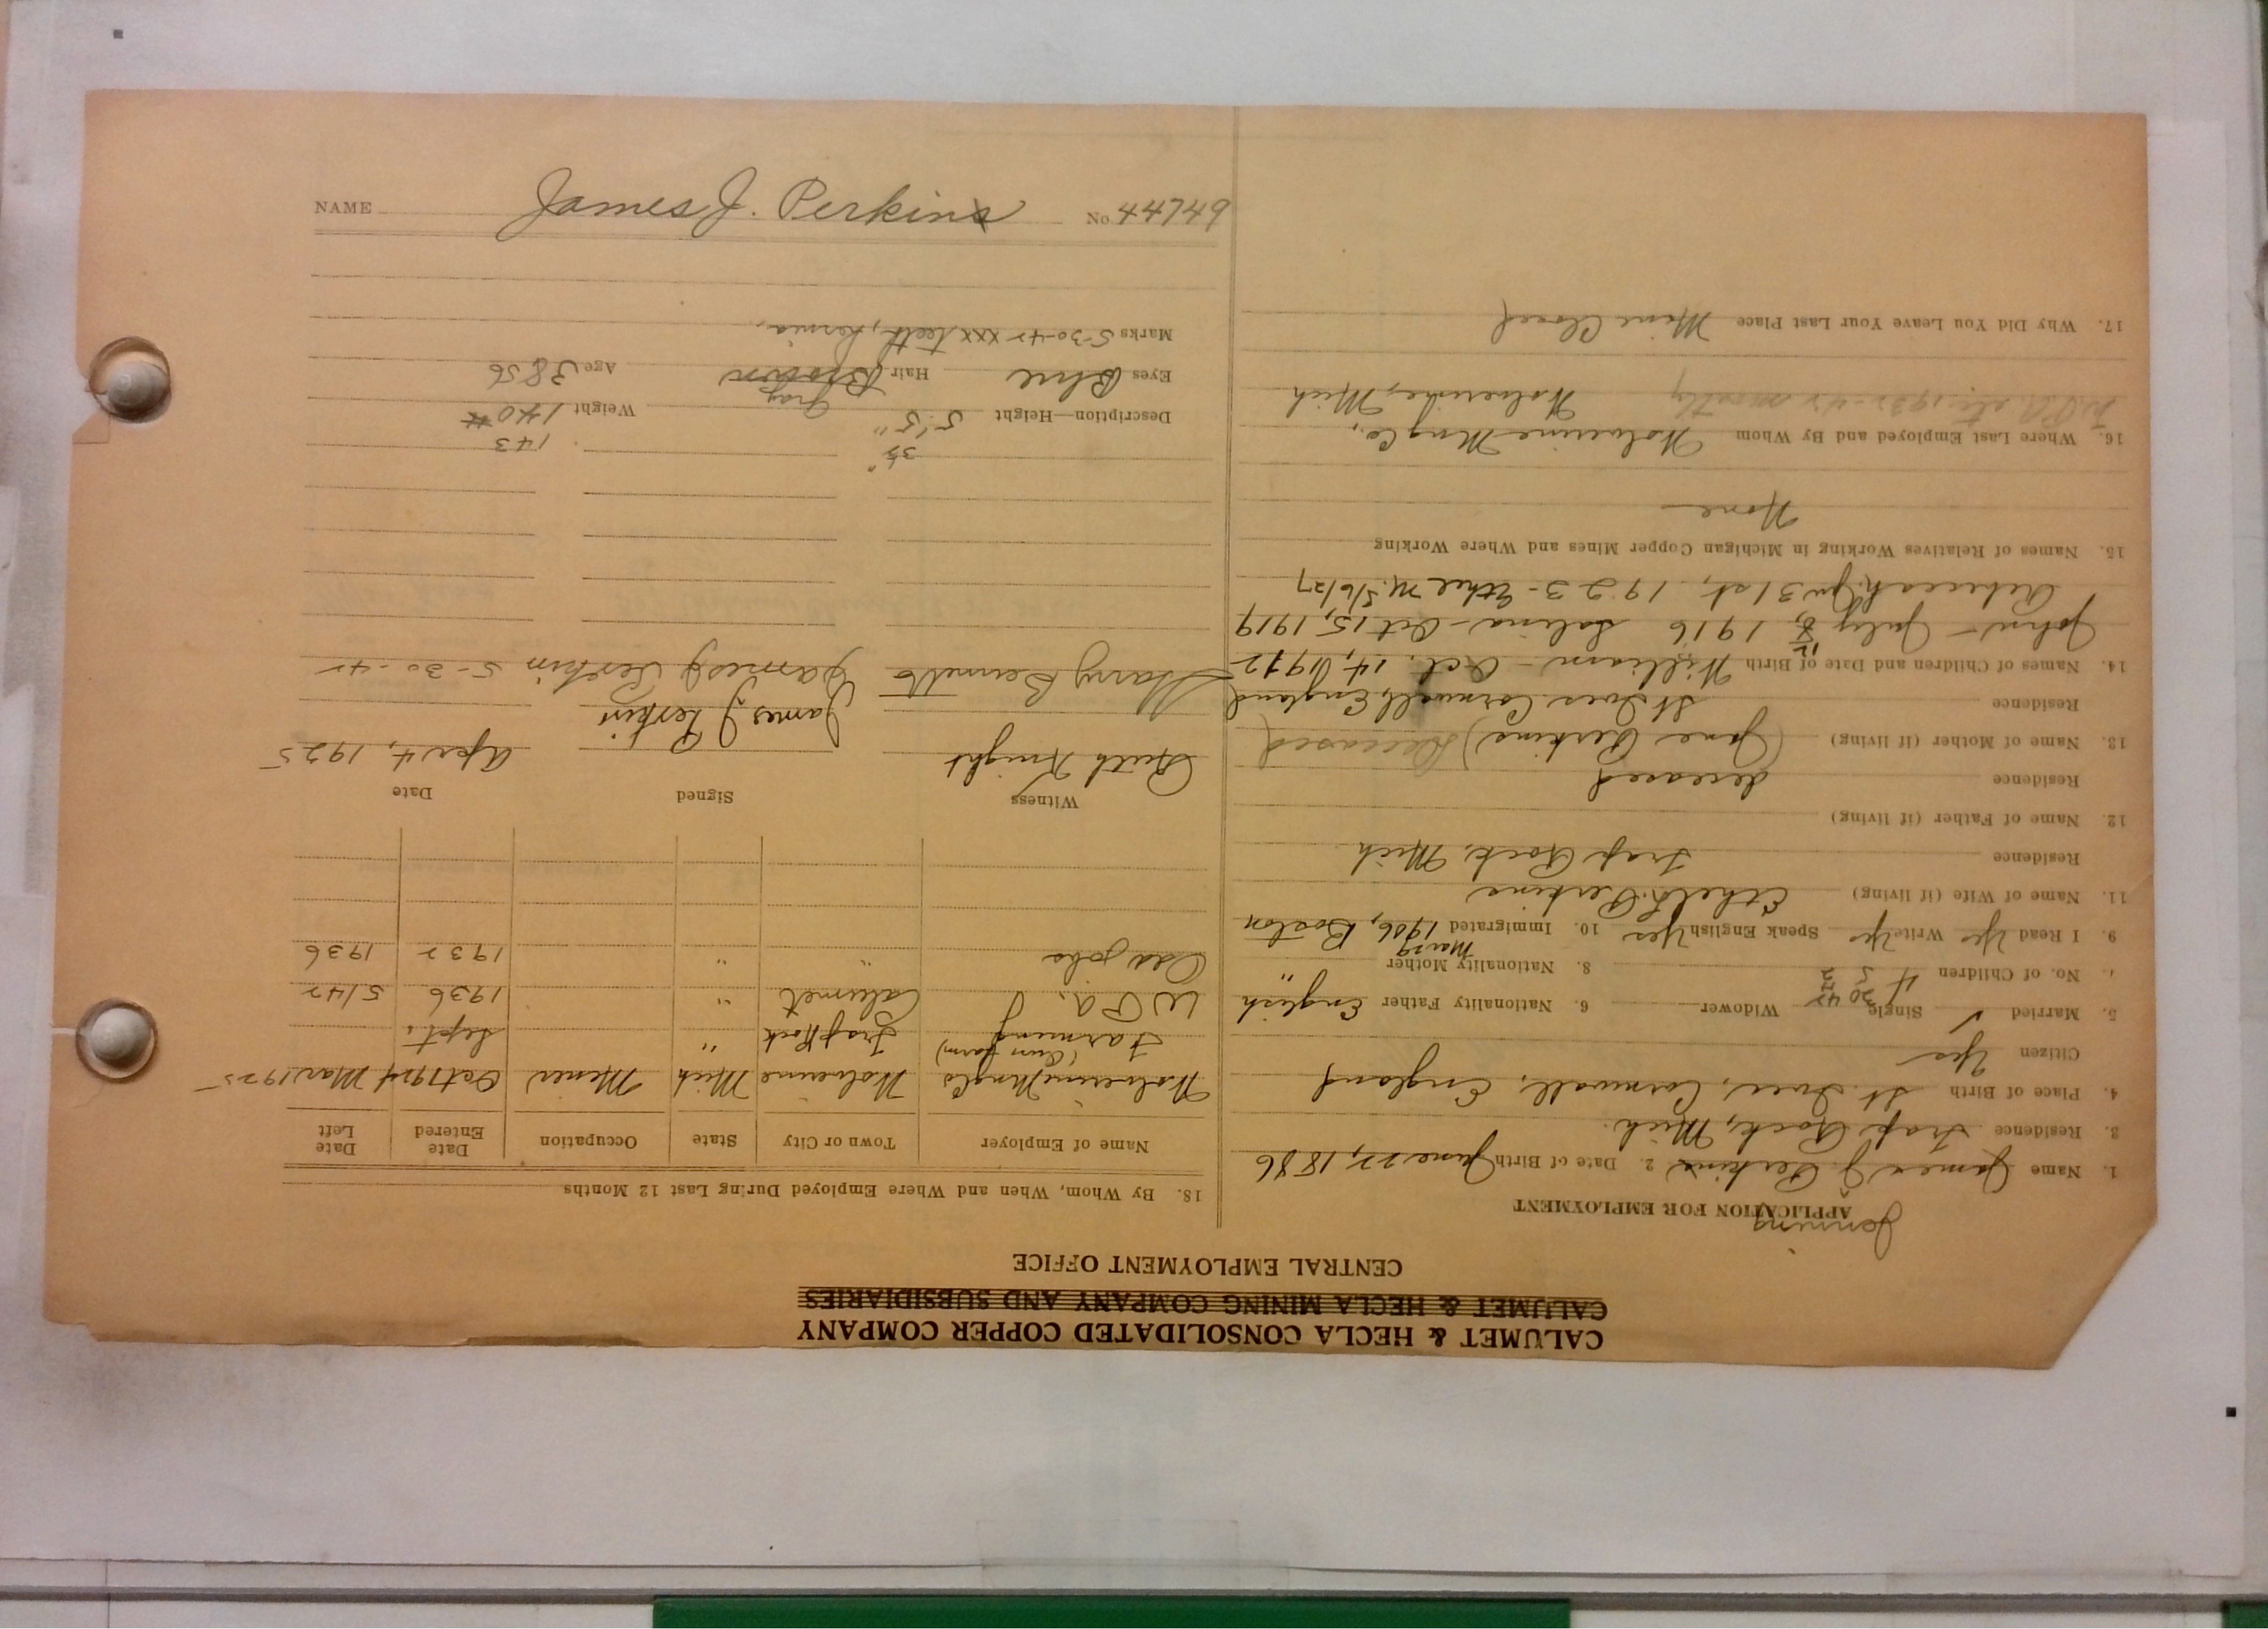 CALUMET & HECLA CONSOLIDATED COPPER COMPANY
CALUMET & HECLA MINING COMPANY AND SUBSIDIARIES
CENTRAL EMPLOYMENT OFFICE
APPLICATION FOR EMPLOYMENT
Jenning
1. Name James J. Perkins 2. Date of Birth June 27, 1886
3. Residence Trap Rock, Mich.
4. Place of Birth St. Ives, Cornwall, England
Citizen Yes
5. Married ✓ Single Widower 6. Nationality Father English
7. No. of Children 4 5 8. Nationality Mother "
9. I Read Yes Write Yes Speak English Yes 10. Immigrated 1906, Boston
11. Name of Wife (if living) Ethel Perkins
Residence Trap Rock, Mich
12. Name of Father (if living)
Residence deceased
13. Name of Mother (if living) (Jane Perkins) (deceased)
Residence St Ives Cornwall, England
14. Names of Children and Date of Birth William - Oct. 14, 1912
John - July 8, 1916 Salina - Oct 15, 1919
Rebecca Jan 31st, 1923 - Ethel M. 5/6/27
15. Names of Relatives Working in Michigan Copper Mines and Where Working
None
16. Where Last Employed and By Whom Wolverine Mng Co,
W.P.A. etc. 1932-42 mostly Wolverine, Mich
17. Why Did You Leave Your Last Place Mine Closed
18. By Whom, When and Where Employed During Last 12 Months
Name of Employer Town or City State Occupation Date Entered Date Left
Wolverine Mng Co Wolverine Mich Miner Oct 1924 Mar 1925
Farming (Own farm) Trap Rock " Sept.
W P A. Calumet " 1936 5/42
Odd jobs " " 1932 1936
Witness Signed Date
Ruth Knight James J Perkin Apr 4, 1925
Harry Bennetts James J Perkin 5-30-42
143
Description—Height 5'5" Weight 140 #
Gray
Eyes Blue Hair Brown Age 38 56
Marks 5-30-42 xxx teeth, hernia.
NAME James J. Perkins No. 44749